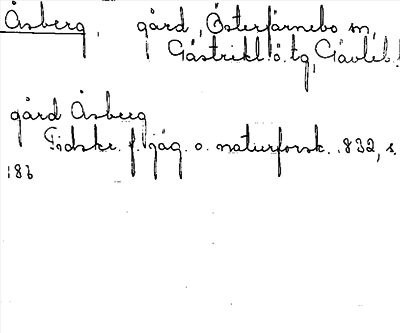 Åsberg, gård, Österfärnebo sn,
Gästrikl. ö. tg, Gävleb. l
gård Åsberg
Tidskr. f. jäg. o. naturforsk. 1832, s.
183